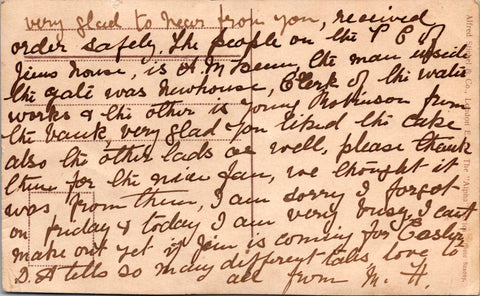 very glad to hear from you, received
order safely. The people on the P C of
Jims house, is A. M. the man inside
the gate was Newhouse, Clerk of the water
works & the other is young Robinson from
the bank, very glad you liked the cake
also the other lads are well, please thank
them for the nice fan, we thought it
was from them, I am sorry I forgot
on friday & today I am very busy, I cant
make out yet if Jim is coming for Easter
D. A tells so many different tales, love to
all from M. H.
Alfred & Co., London E. The "Alpha"